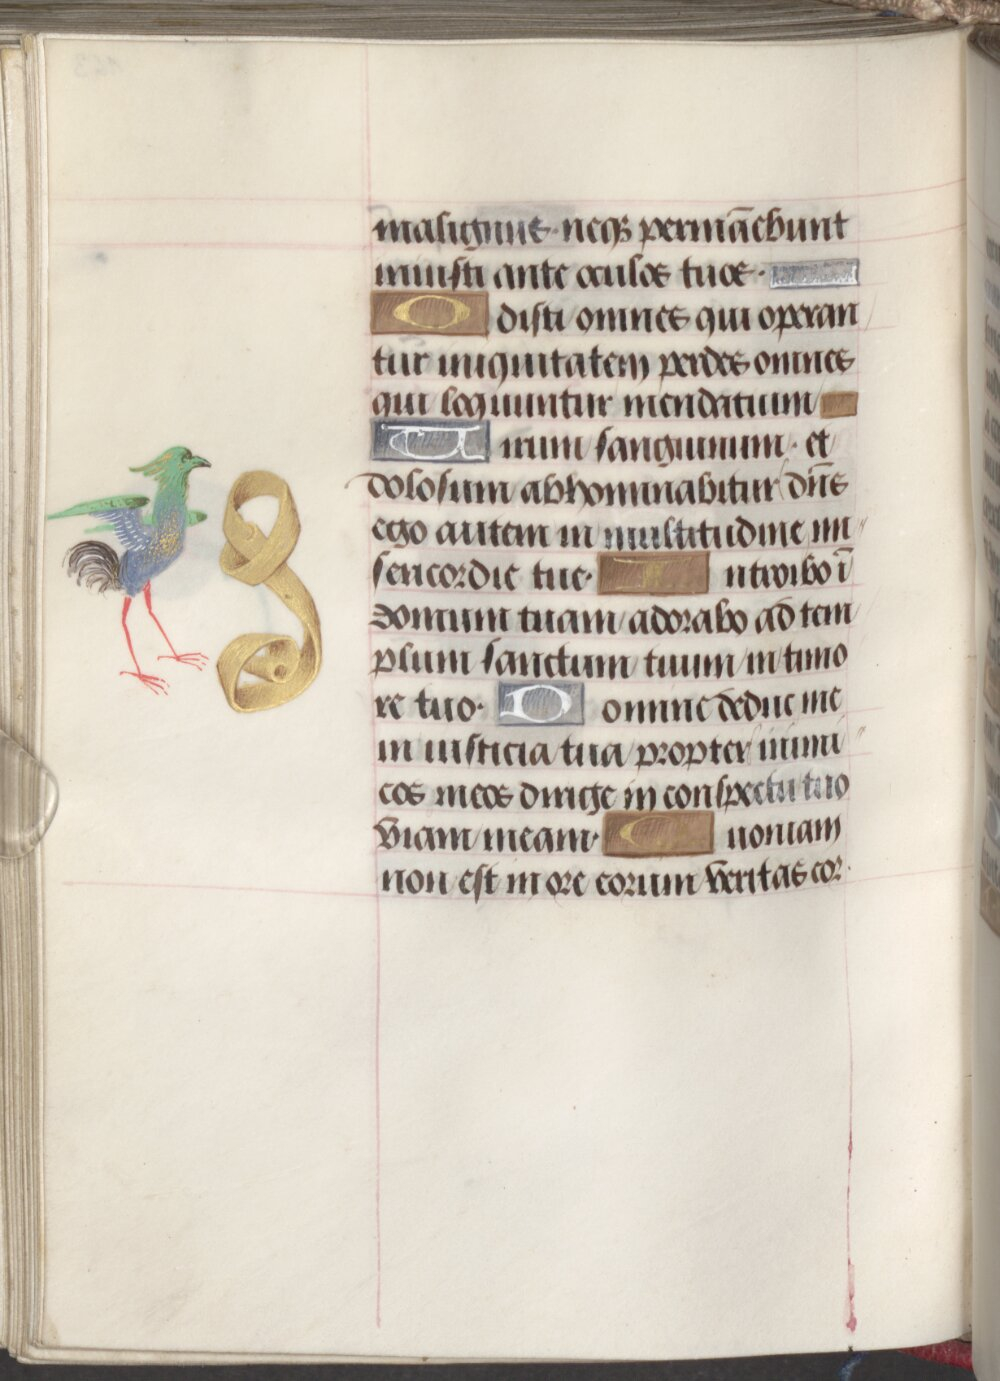 malignus · neqꝫ permāebunt
iniusti ante oculos tuos ·
Odisti omnes qui operan
tur iniquitatem perdes omnes
qui loquuntur mendatium
Uirum sanguinum · et
dolosum abhominabitur dn̄s
ego autem in multitudine mi
sericordie tue · Introibo ī
domum tuam adorabo ad tem
plum sanctum tuum in timo
re tuo · Domine deduc me
in iusticia tua propter inimi
cos meos dirige in conspectu tuo
viam meam · Quoniam
non est in ore eorum veritas cor